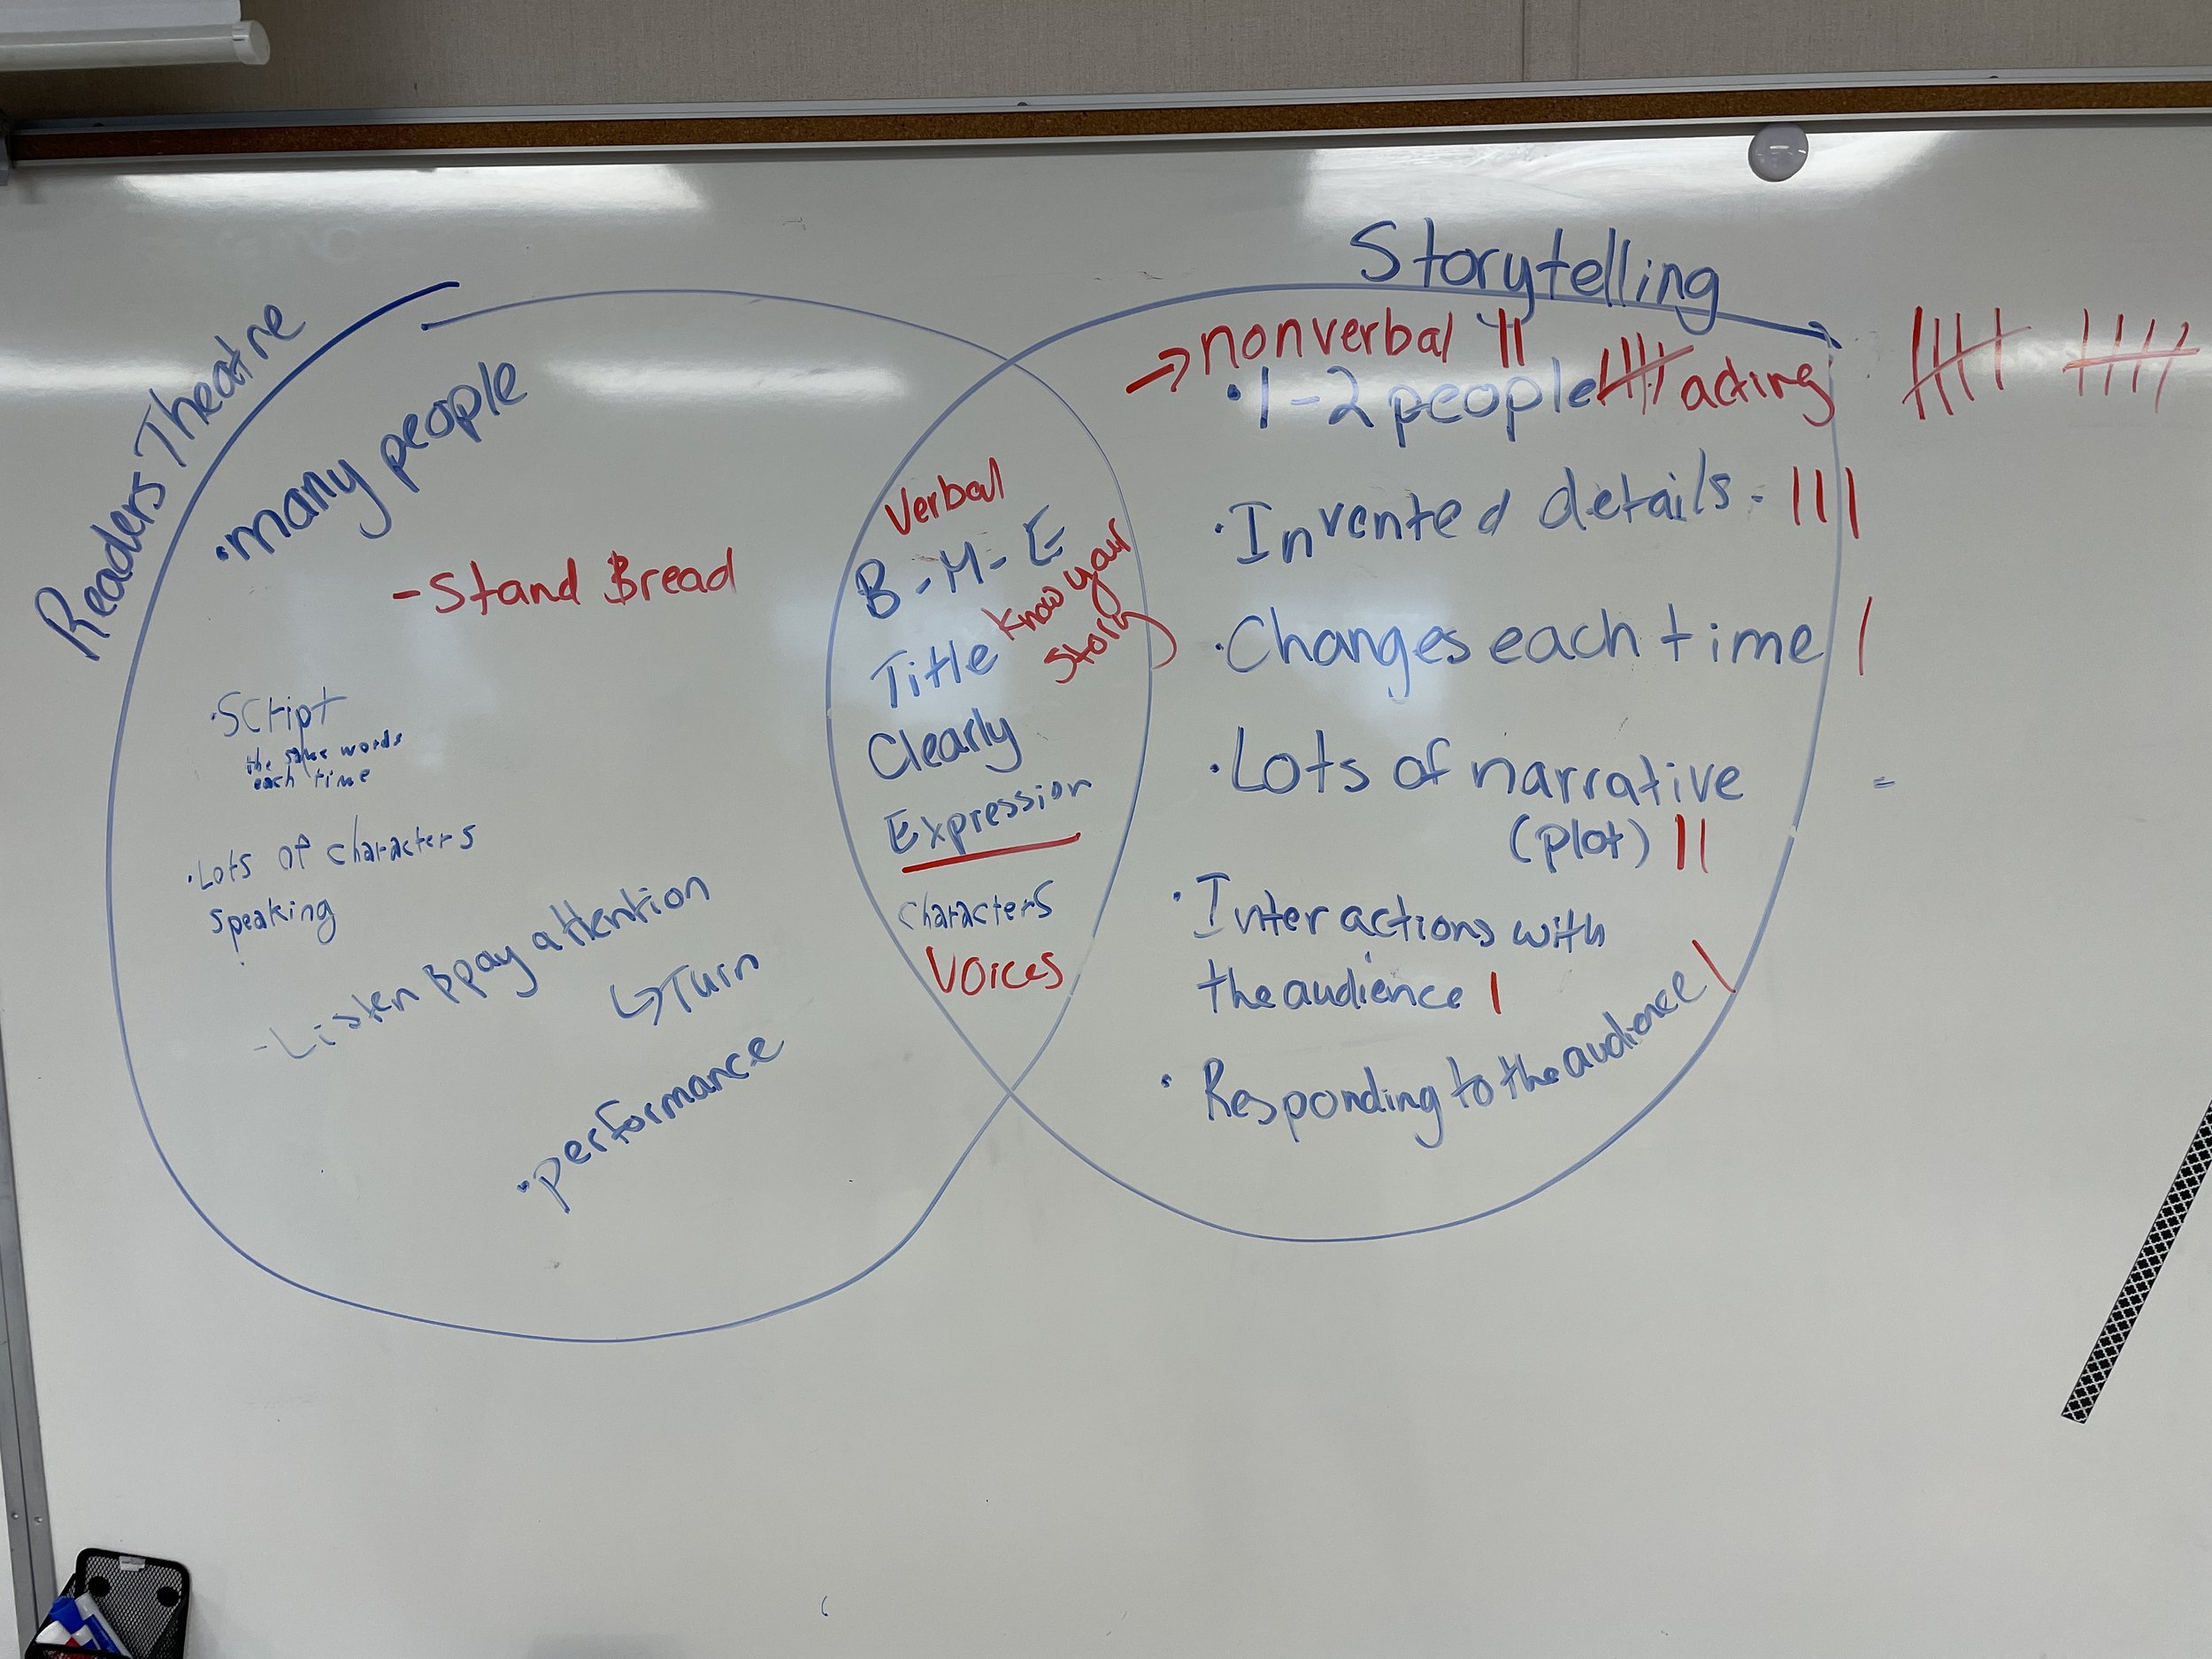 Readers Theatre
• many people
- Stand & read
• Script
the same words
each time
• Lots of characters
speaking
- Listen & pay attention
↳ Turn
• performance
Verbal
B - M - E
know your
story
Title
Clearly
Expression
Characters
Voices
Storytelling
→ nonverbal ||
• 1-2 people 卌 acting 卌 卌
• Invented details. |||
• Changes each time |
• Lots of narrative =
(plot) ||
• Interactions with
the audience |
• Responding to the audience |